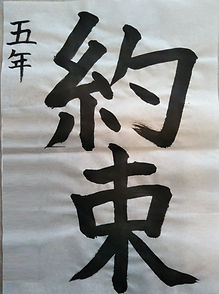 約束
五年